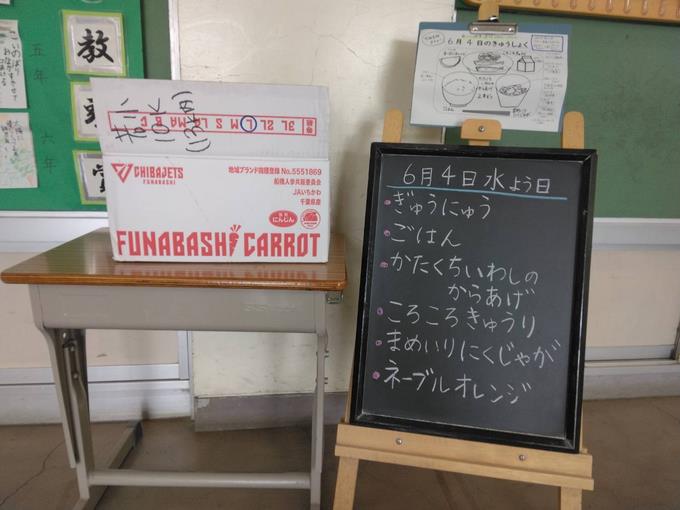 五年
六年
教
6月4日のきゅうしょく
3L 2L L M S
CHIBAJETS
FUNABASHI
地域ブランド商標登録 No.5551869
船橋人参共販委員会
JAいちかわ
千葉県産
にんじん
FUNABASHI CARROT
6月4日水よう日
ぎゅうにゅう
ごはん
かたくちいわしの
からあげ
ころころきゅうり
まめいりにくじゃが
ネーブルオレンジ